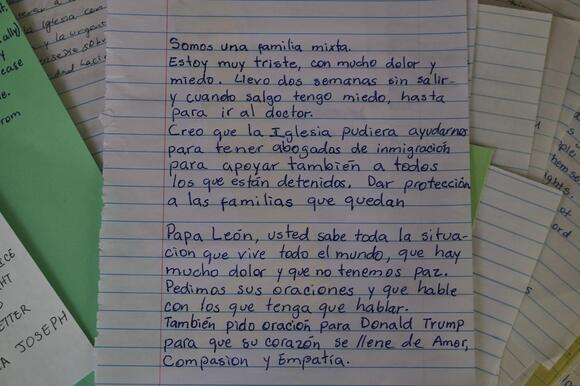 Somos una familia mixta.
Estoy muy triste, con mucho dolor y
miedo. Llevo dos semanas sin salir
y cuando salgo tengo miedo, hasta
para ir al doctor.
Creo que la Iglesia pudiera ayudarnos
para tener abogados de inmigración
para apoyar también a todos
los que están detenidos. Dar protección
a las familias que quedan
Papa León, usted sabe toda la situa-
cion que vive todo el mundo, que hay
mucho dolor y que no tenemos paz.
Pedimos sus oraciones y que hable
con los que tenga que hablar.
También pido oración para Donald Trump
para que su corazón se llene de Amor,
Compasion y Empatía.
ICE
HT
ETTER
A JOSEPH